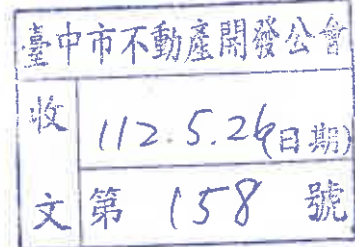 臺中市不動產開發公會
收 112.5.26(日期)
文 第 158 號